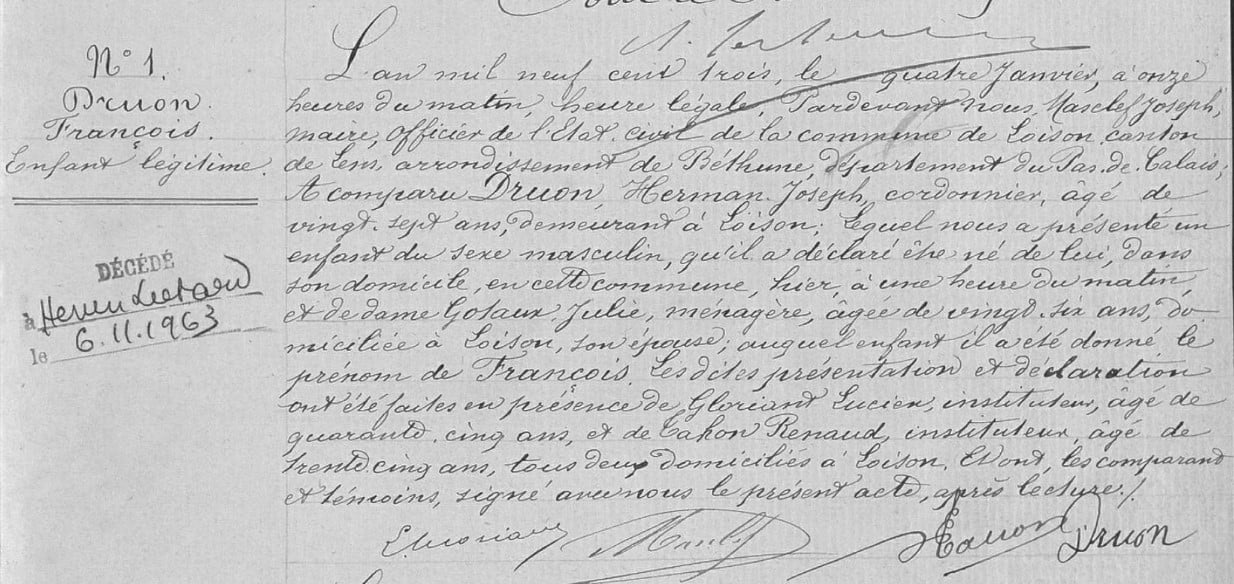 N° 1.
Druon
François.
Enfant légitime.
DÉCÉDÉ
à Henin Lietard
le 6.11.1963
L'an mil neuf cent trois, le quatre Janvier, à onze
heures du matin, heure légale, Pardevant nous, Masclef Joseph,
maire, Officier de l'Etat civil de la commune de Loison, canton
de Lens, arrondissement de Béthune, département du Pas-de-Calais;
A comparu Druon, Herman Joseph, cordonnier, âgé de
vingt-sept ans, demeurant à Loison; Lequel nous a présenté un
enfant du sexe masculin, qu'il a déclaré être né de lui, dans
son domicile, en cette commune, hier, à une heure du matin,
et de dame Gosaux Julie, ménagère, âgée de vingt-six ans, do-
miciliée à Loison, son épouse; auquel enfant il a été donné le
prénom de François. Les dites présentation et déclaration
ont été faites en présence de Gloriant Lucien, instituteur, âgé de
quarante-cinq ans, et de Cahon Renaud, instituteur, âgé de
trente-cinq ans, tous deux domiciliés à Loison. Et ont, les comparant
et témoins, signé avec nous le présent acte, après lecture./.
Druon